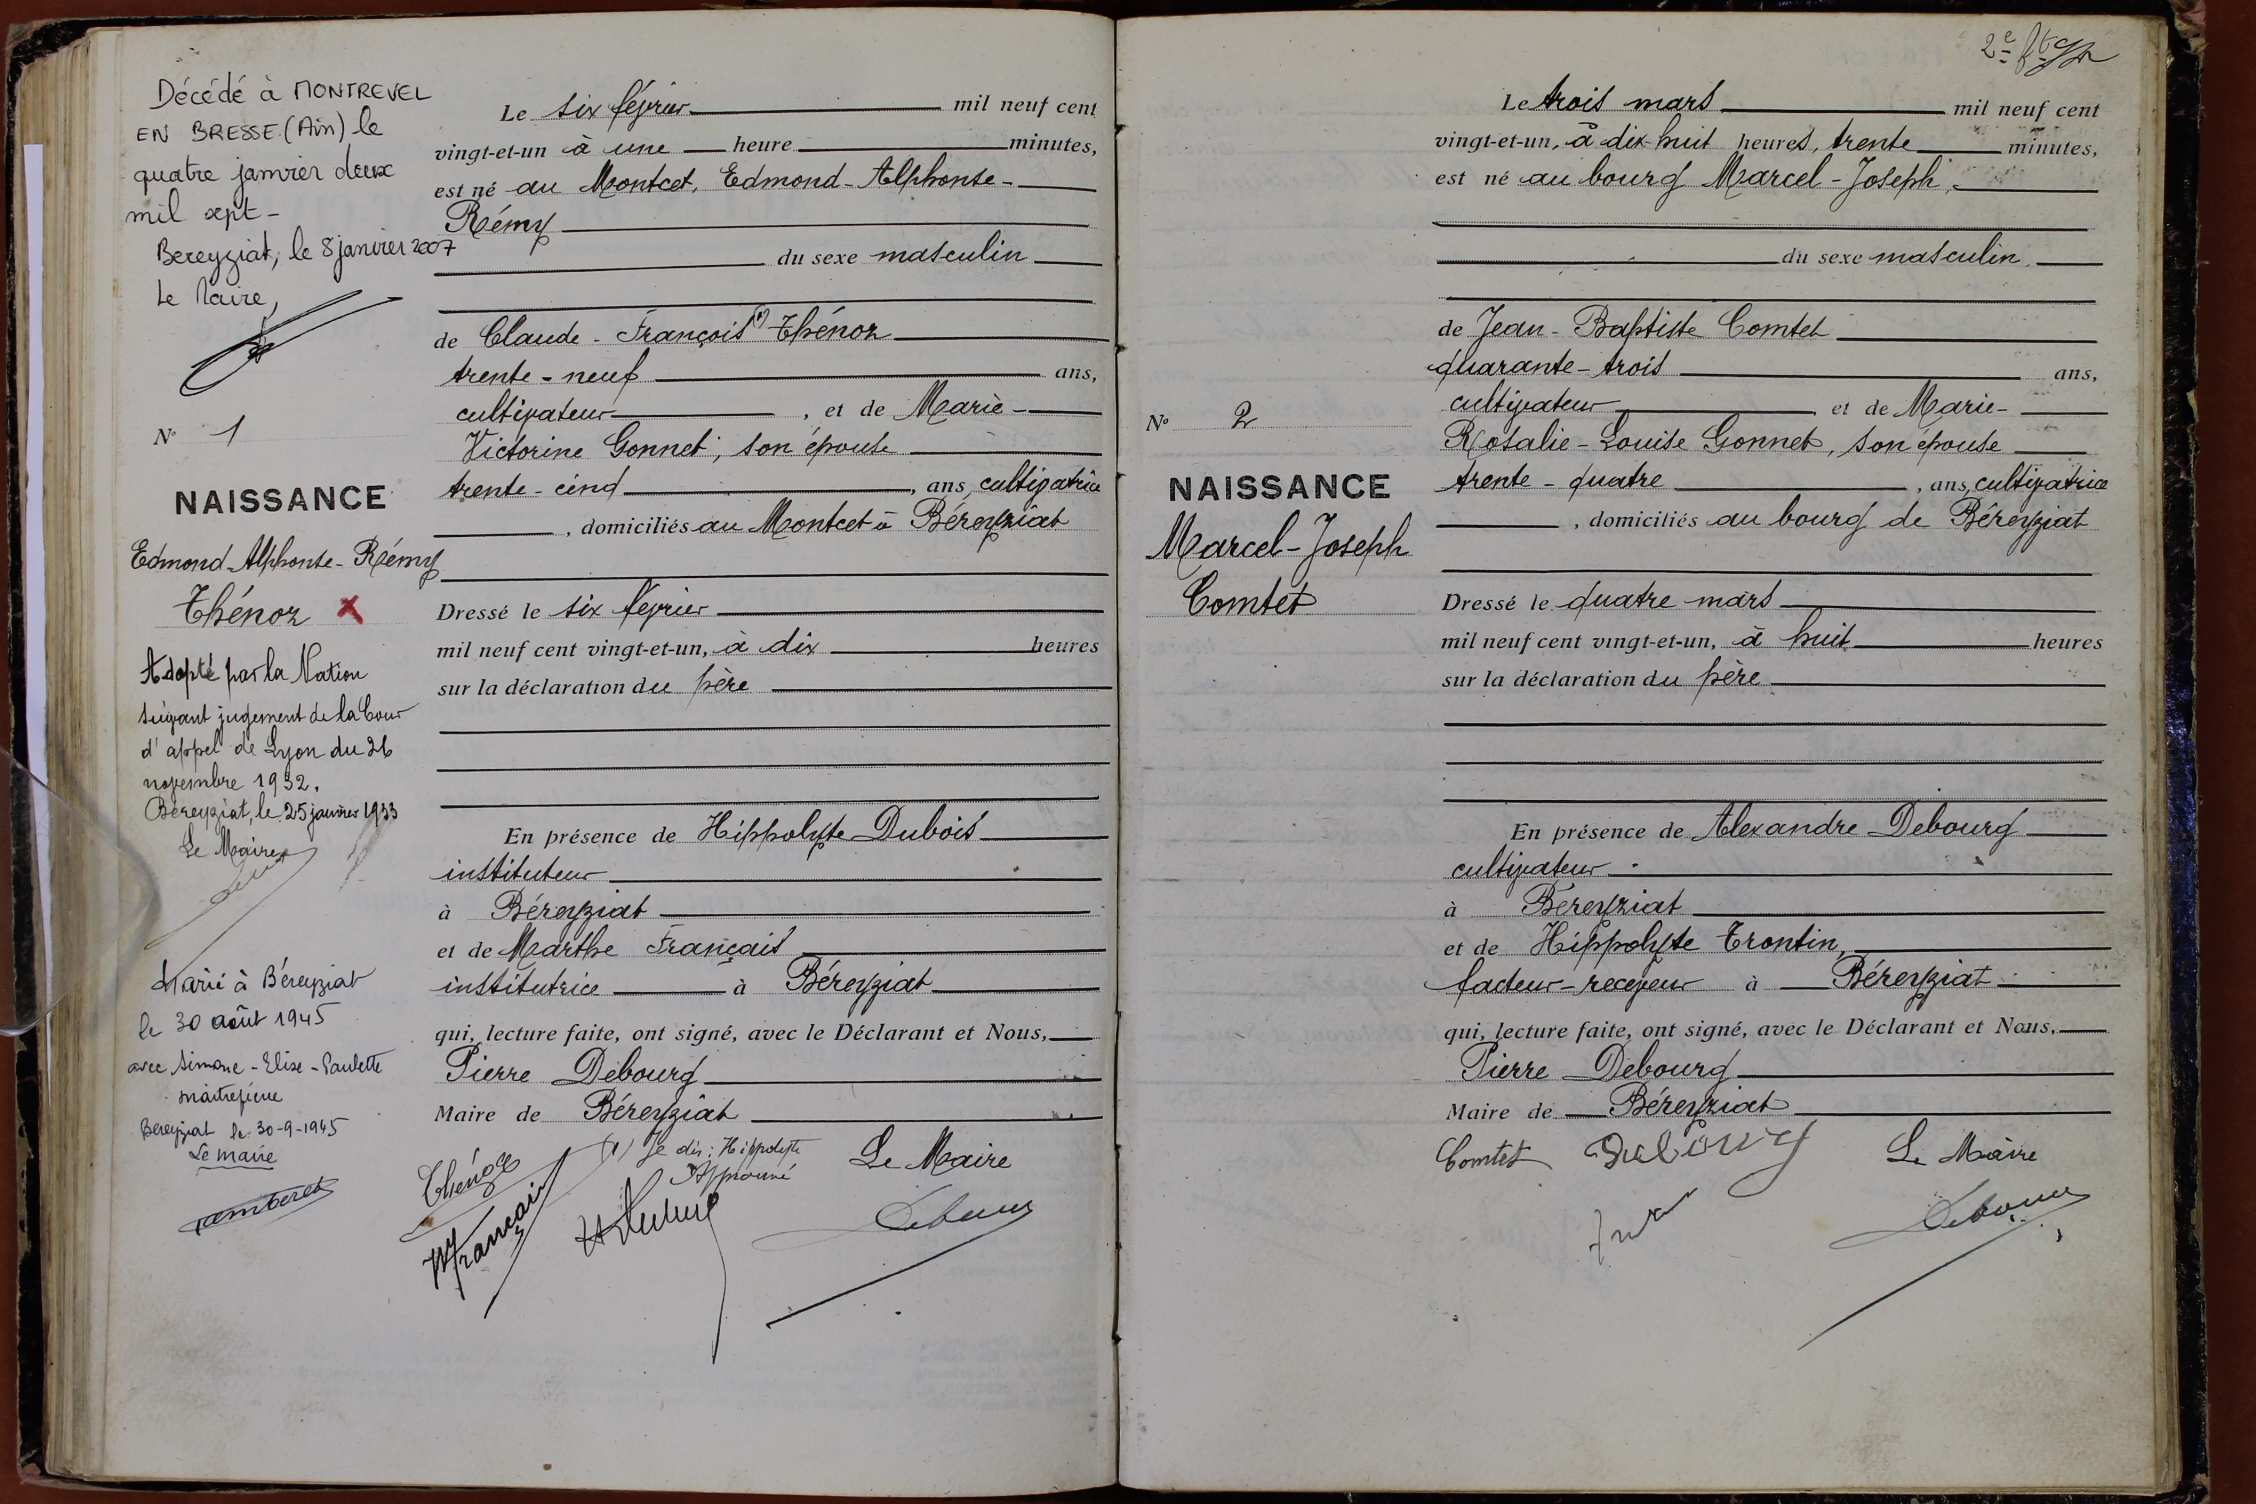 Décédé à MONTREVEL
EN BRESSE (Ain) le
quatre janvier deux
mil sept -
Bereyziat, le 8 janvier 2007
Le Maire,
N° 1
NAISSANCE
Edmond-Alphonse-Rémy
Thénoz X
Adopté par la Nation
suivant jugement de la Cour
d'appel de Lyon du 26
novembre 1932.
Béreyziat, le 25 janvier 1933
Le Maire
Marié à Béreyziat
le 30 août 1945
avec Simone-Elise-Paulette
Bereyziat le 30-9-1945
Le maire
Le six février mil neuf cent
vingt-et-un à une heure minutes,
est né au Montcet, Edmond-Alphonse-
Rémy
du sexe masculin
de Claude-François (1) Thénoz
trente-neuf ans,
cultivateur, et de Marie-
Victorine Gonnet, son épouse
trente-cinq, ans, cultivatrice
, domiciliés au Montcet à Béreyziat
Dressé le six février
mil neuf cent vingt-et-un, à dix heures
sur la déclaration du père
En présence de Hippolyte Dubois
instituteur
à Béreyziat
et de Marthe Français
institutrice à Béreyziat
qui, lecture faite, ont signé, avec le Déclarant et Nous,
Pierre Debourg
Maire de Béreyziat
(1) Je dis : Hippolyte
Approuvé
Le Maire
Thénoz
M Français
2e
N° 2
NAISSANCE
Marcel-Joseph
Comtet
Le trois mars mil neuf cent
vingt-et-un, à dix-huit heures, trente minutes,
est né au bourg Marcel-Joseph,
du sexe masculin
de Jean-Baptiste Comtet
quarante-trois ans,
cultivateur et de Marie-
Rosalie-Louise Gonnet, son épouse
trente-quatre, ans, cultivatrice
, domiciliés au bourg de Béreyziat
Dressé le quatre mars
mil neuf cent vingt-et-un, à huit heures
sur la déclaration du père
En présence de Alexandre Debourg
cultivateur
à Béreyziat
et de Hippolyte Trontin,
facteur-receveur à Béreyziat
qui, lecture faite, ont signé, avec le Déclarant et Nous,
Pierre Debourg
Maire de Béreyziat
Comtet Debourg Le Maire
Debourg